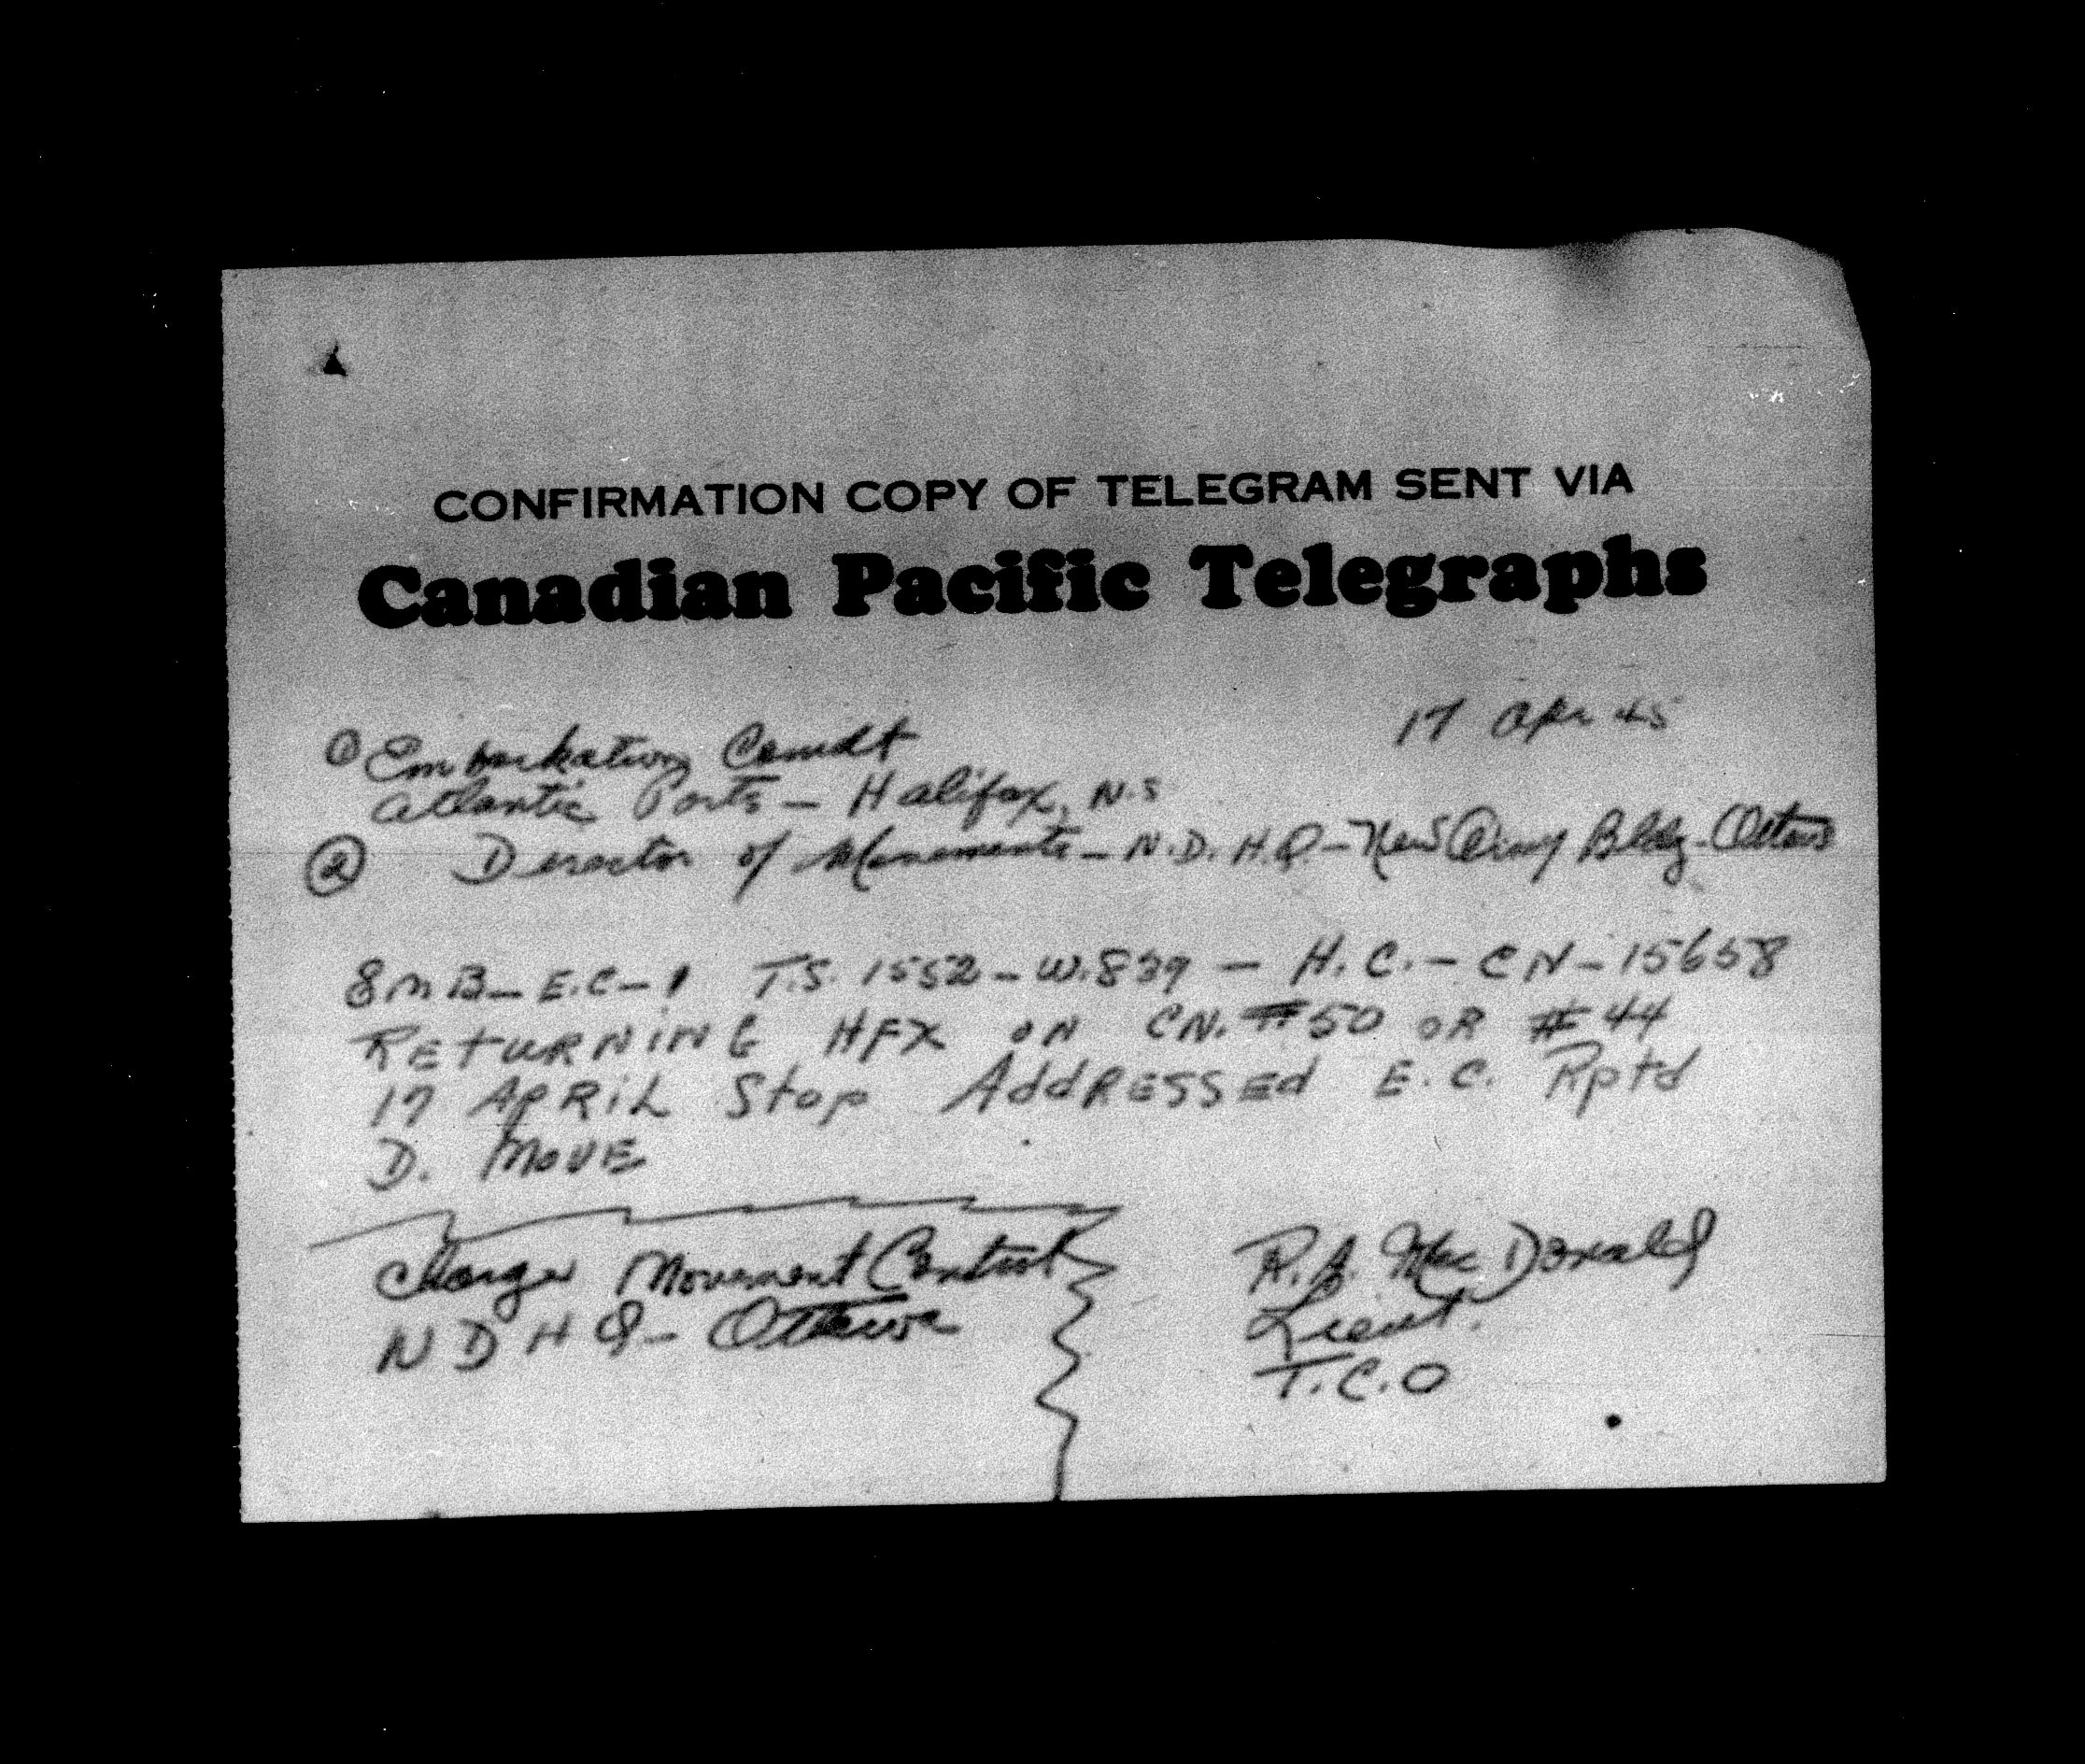 CONFIRMATION COPY OF TELEGRAM SENT VIA
Canadian Pacific Telegraphs
17 Apr 45
① Embarkation Comdt
Atlantic Ports – Halifax, N.S
② Director of Movements – N.D.H.Q – New Army Bldg – Ottawa
8MB – E.C – 1 T.S. 1552 – W.839 – H.C. – CN – 15658
RETURNING HFX ON CN. #50 OR #44
17 APRIL Stop AddRESSEd E.C. Rptd
D. MOVE
Charge Movement Control
NDHQ – Ottawa
R.A. MacDonald
Lieut.
T.C.O